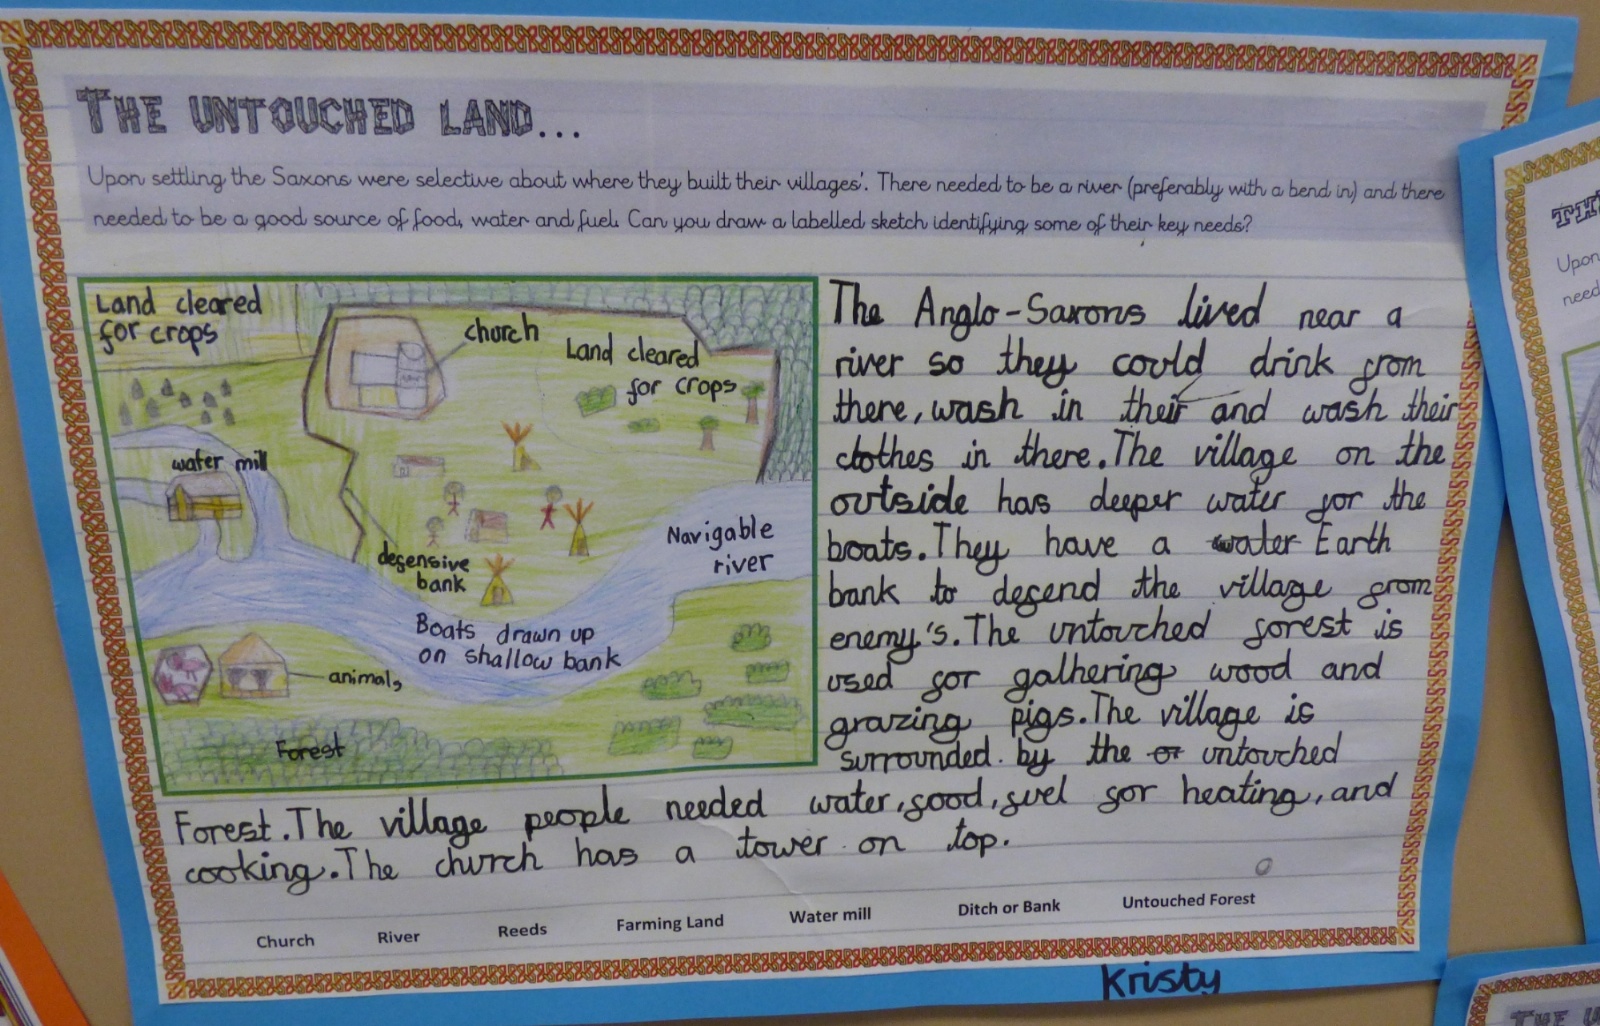 THE UNTOUCHED LAND...
Upon settling the Saxons were selective about where they built their villages'. There needed to be a river (preferably with a bend in) and there
needed to be a good source of food, water and fuel. Can you draw a labelled sketch identifying some of their key needs?
Land cleared
for crops
church
Land cleared
for crops
water mill
defensive
bank
Navigable
river
Boats drawn up
on shallow bank
animals
Forest
The Anglo-Saxons lived near a
river so they could drink from
there, wash in their and wash their
clothes in there. The village on the
outside has deeper water for the
boats. They have a water Earth
bank to defend the village from
enemy's. The untouched forest is
used for gathering wood and
grazing pigs. The village is
surrounded. by the or untouched
Forest. The village people needed water, food, fuel for heating, and
cooking. The church has a tower on top.
Church River Reeds Farming Land Water mill Ditch or Bank Untouched Forest
Kristy
TH
Upon
need
THE U